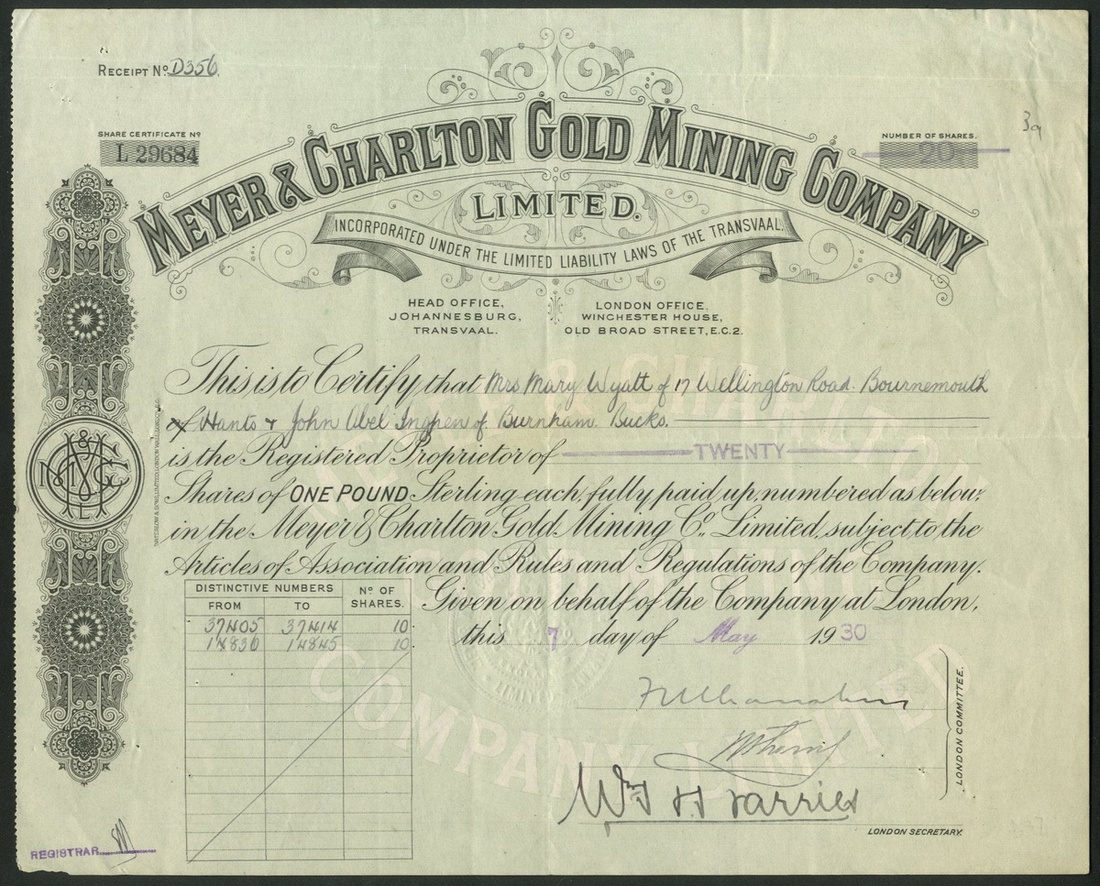 RECEIPT Nº D356
SHARE CERTIFICATE Nº
L 29684
NUMBER OF SHARES.
20
MEYER & CHARLTON GOLD MINING COMPANY
LIMITED.
INCORPORATED UNDER THE LIMITED LIABILITY LAWS OF THE TRANSVAAL.
HEAD OFFICE,
JOHANNESBURG,
TRANSVAAL.
LONDON OFFICE,
WINCHESTER HOUSE,
OLD BROAD STREET, E.C.2.
This is to Certify that Mrs Mary Wyatt of 17 Wellington Road. Bournemouth
of Hants & John Abel Ingpen of Burnham. Bucks.
is the Registered Proprietor of TWENTY
Shares of ONE POUND Sterling each, fully paid up, numbered as below,
in the Meyer & Charlton Gold Mining Co., Limited, subject to the
Articles of Association and Rules and Regulations of the Company.
Given on behalf of the Company at London,
this 7 day of May 1930
DISTINCTIVE NUMBERS
FROM TO
Nº OF SHARES.
37405 37414 10
14845 10
LONDON COMMITTEE.
LONDON SECRETARY.
REGISTRAR
MEYER & CHARLTON
GOLD MINING
COMPANY LIMITED